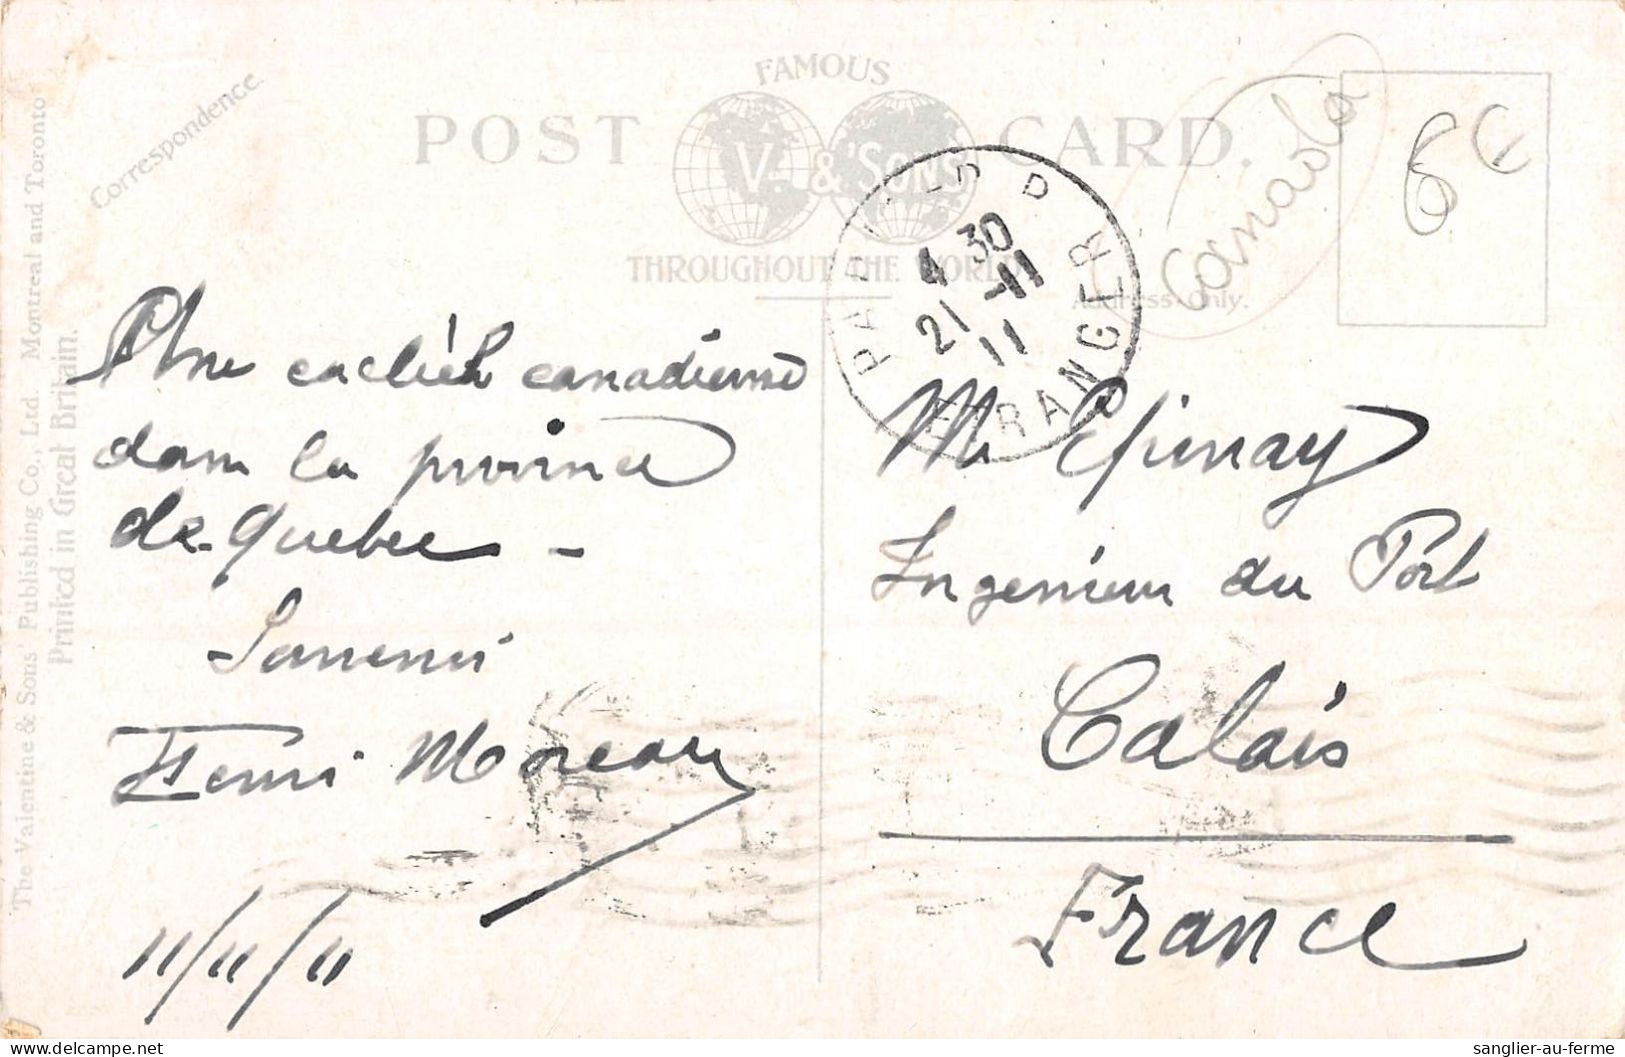 FAMOUS
POST CARD.
V. & Sons
THROUGHOUT THE WORLD
Correspondence.
Address Only.
The Valentine & Sons' Publishing Co., Ltd. Montreal and Toronto.
Printed in Great Britain.
Canada
6€
4 30
21 -11
11
ETRANGER
Une canadienne
dans la province
de Quebec -
Henri Moreau
11/11/11
M. Epinay
Ingenieur du Port
Calais
France
sanglier-au-ferme